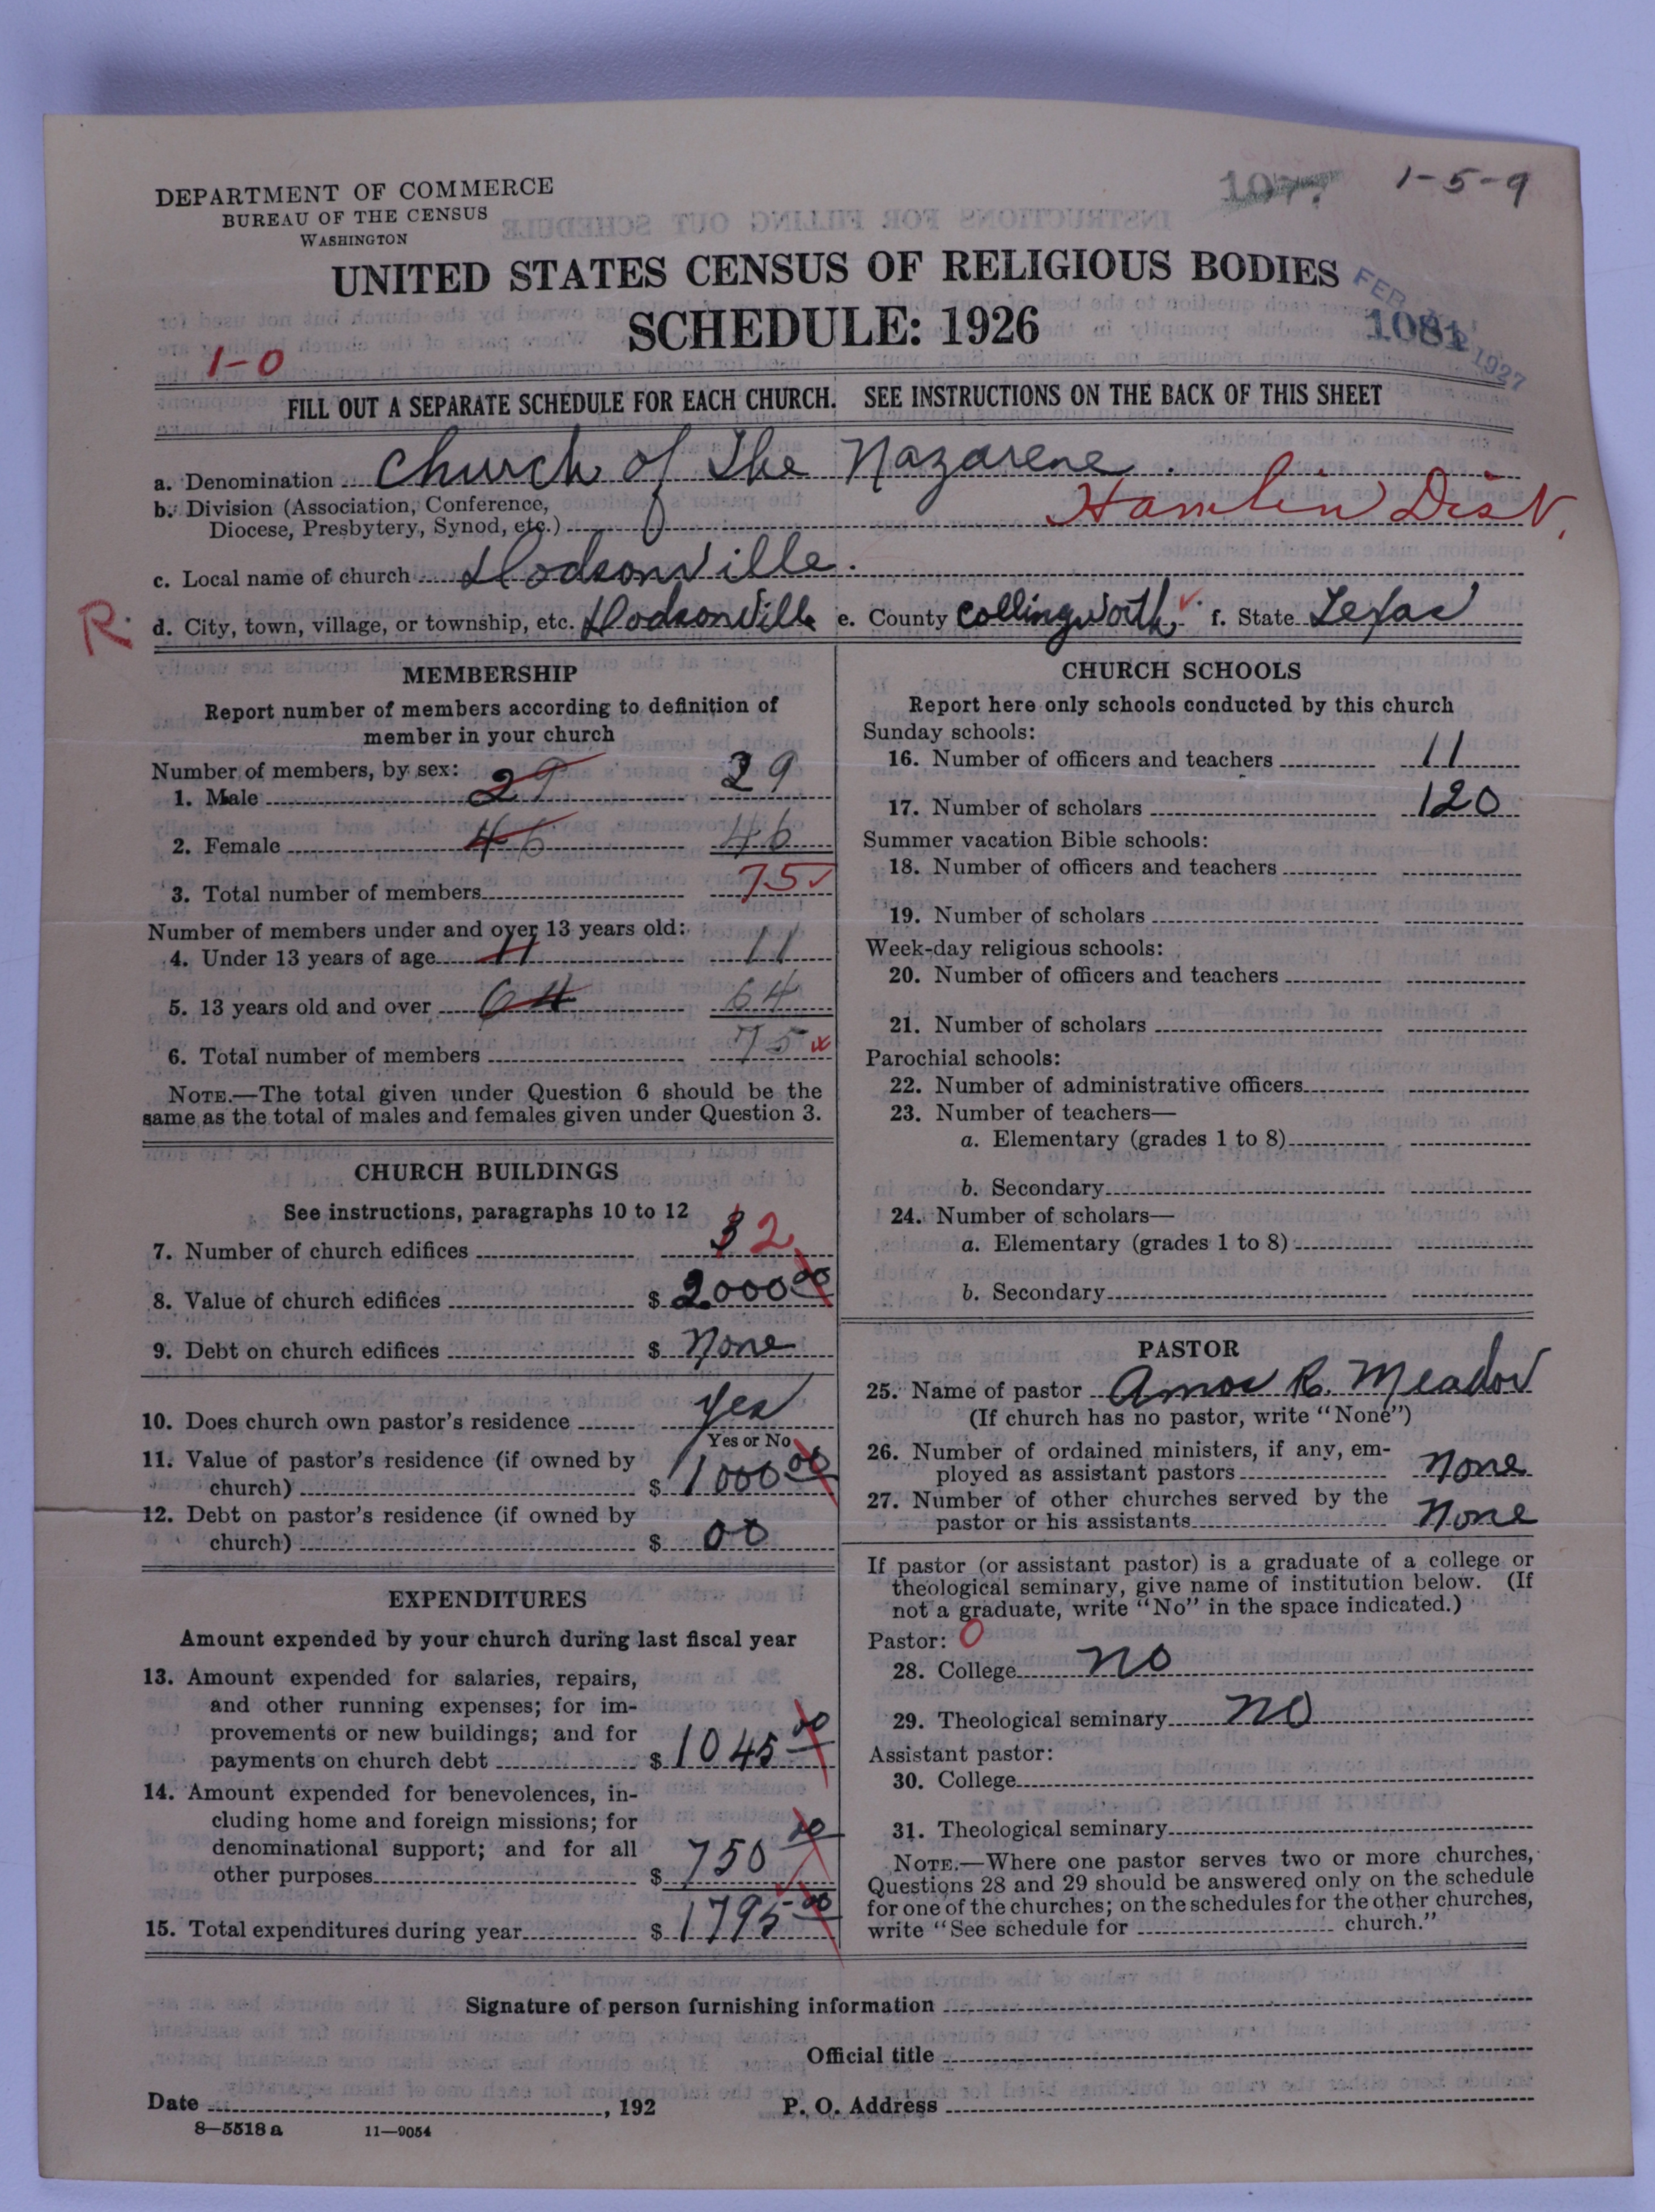 DEPARTMENT OF COMMERCE
BUREAU OF THE CENSUS
WASHINGTON
1077
1-5-9
UNITED STATES CENSUS OF RELIGIOUS BODIES
SCHEDULE: 1926
FEB 1927
1081
1-0
FILL OUT A SEPARATE SCHEDULE FOR EACH CHURCH. SEE INSTRUCTIONS ON THE BACK OF THIS SHEET
a. Denomination Church of The Nazarene.
b. Division (Association, Conference,
Diocese, Presbytery, Synod, etc.) Hamlin Dist.
c. Local name of church Dodsonville.
R. d. City, town, village, or township, etc. Dodsonville e. County Collingworth, f. State Texas
MEMBERSHIP
Report number of members according to definition of
member in your church
Number of members, by sex:
1. Male 29 29
2. Female 46 46
3. Total number of members 75
Number of members under and over 13 years old:
4. Under 13 years of age 11 11
5. 13 years old and over 64 64
6. Total number of members 75
NOTE.—The total given under Question 6 should be the
same as the total of males and females given under Question 3.
CHURCH BUILDINGS
See instructions, paragraphs 10 to 12
7. Number of church edifices 3 2
8. Value of church edifices $ 2000 00
9. Debt on church edifices $ None
10. Does church own pastor's residence Yes
Yes or No
11. Value of pastor's residence (if owned by
church) $ 1000 00
12. Debt on pastor's residence (if owned by
church) $ 00
EXPENDITURES
Amount expended by your church during last fiscal year
13. Amount expended for salaries, repairs,
and other running expenses; for im-
provements or new buildings; and for
payments on church debt $ 1045 00
14. Amount expended for benevolences, in-
cluding home and foreign missions; for
denominational support; and for all
other purposes $ 750 00
15. Total expenditures during year $ 1795 00
CHURCH SCHOOLS
Report here only schools conducted by this church
Sunday schools:
16. Number of officers and teachers 11
17. Number of scholars 120
Summer vacation Bible schools:
18. Number of officers and teachers
19. Number of scholars
Week-day religious schools:
20. Number of officers and teachers
21. Number of scholars
Parochial schools:
22. Number of administrative officers
23. Number of teachers—
a. Elementary (grades 1 to 8)
b. Secondary
24. Number of scholars—
a. Elementary (grades 1 to 8)
b. Secondary
PASTOR
25. Name of pastor Amos R. Meador
(If church has no pastor, write "None")
26. Number of ordained ministers, if any, em-
ployed as assistant pastors None
27. Number of other churches served by the
pastor or his assistants None
If pastor (or assistant pastor) is a graduate of a college or
theological seminary, give name of institution below. (If
not a graduate, write "No" in the space indicated.)
Pastor: 0
28. College No
29. Theological seminary No
Assistant pastor:
30. College
31. Theological seminary
NOTE.—Where one pastor serves two or more churches,
Questions 28 and 29 should be answered only on the schedule
for one of the churches; on the schedules for the other churches,
write "See schedule for church."
Signature of person furnishing information
Official title
Date , 192
P. O. Address
8—5518 a 11—9054